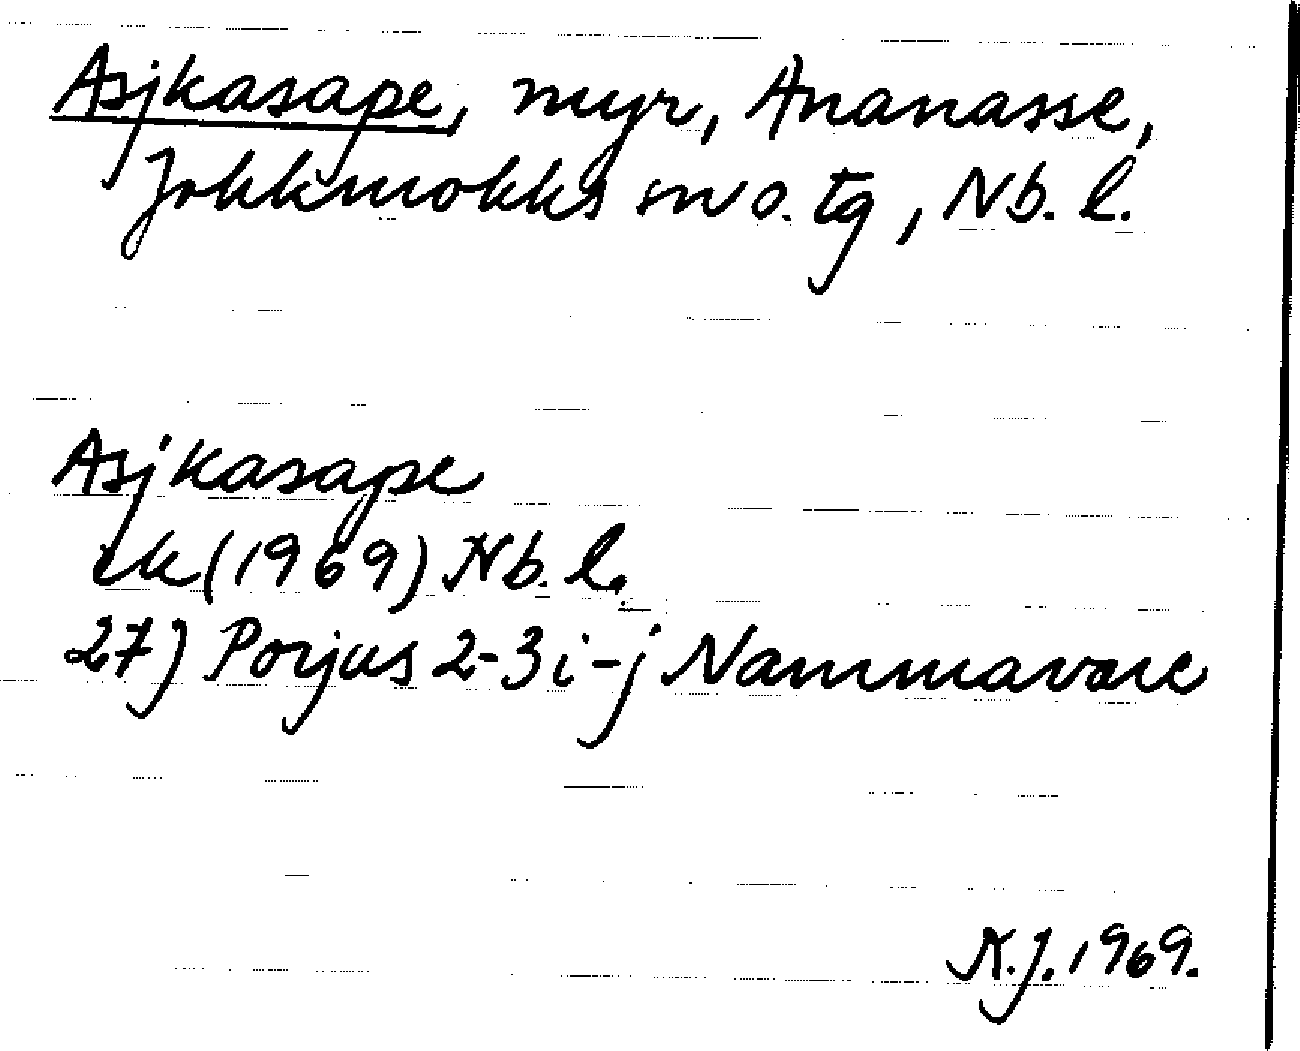 Asjkasape, myr, Ananasse,
Jokkmokks sn o. tg, Nb. l.
Asjkasape
ek (1969) Nb. l.
27) Porjus 2-3 i-j Nammavare
N.J. 1969.